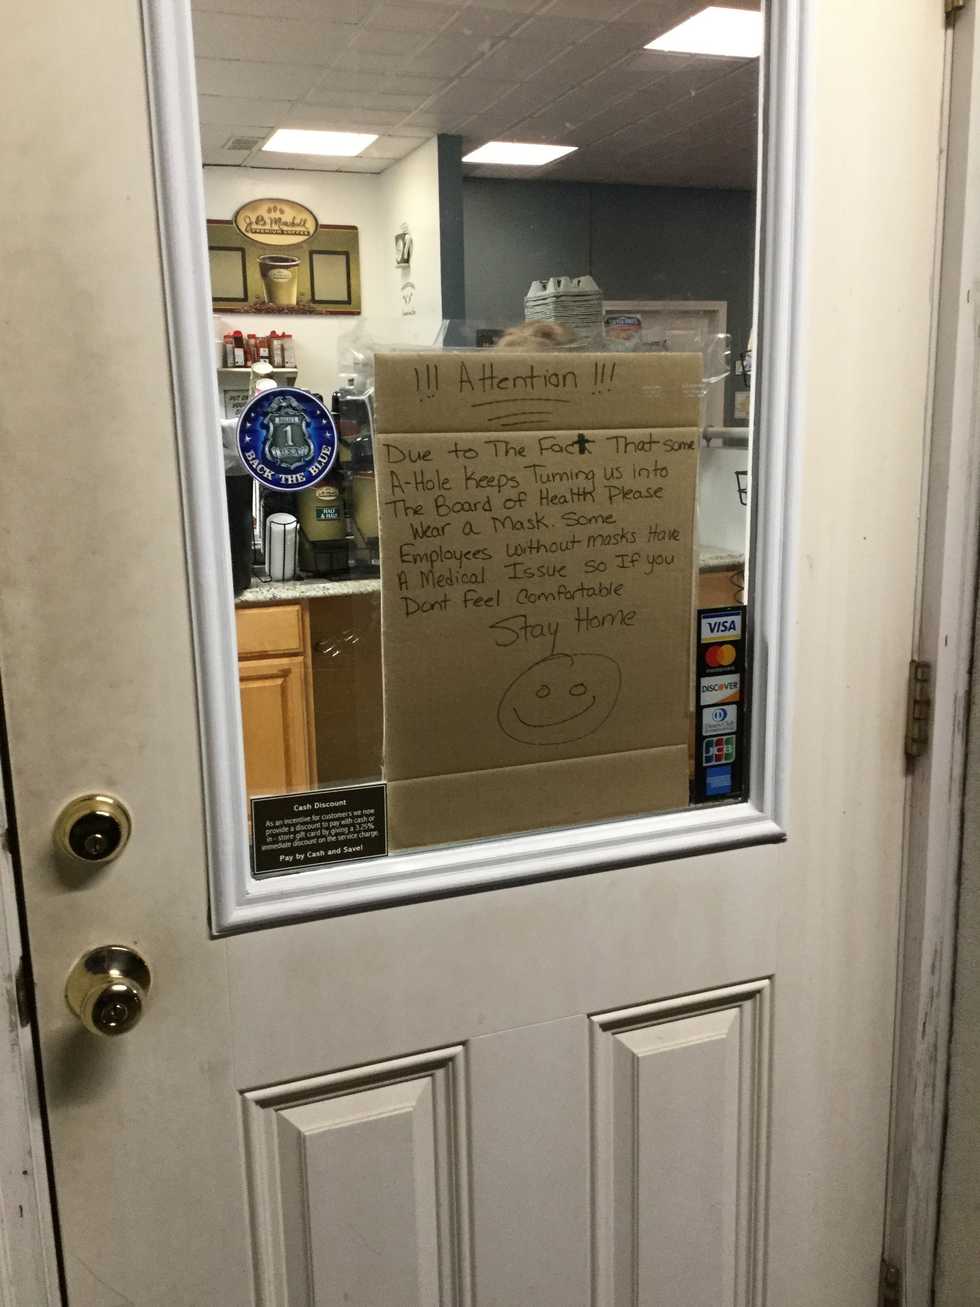 J.B. Marshall
PREMIUM COFFEE
!!! Attention !!!
Due to The Fact That some
A-Hole Keeps Turning us into
The Board of Health Please
Wear a Mask. Some
Employees without masks Have
A Medical Issue So If you
Dont feel Comfortable
Stay Home
1
BACK THE BLUE
HALF
& HALF
VISA
DISCOVER
JCB
Cash Discount
As an incentive for customers we now
provide a discount to pay with cash or
in - store gift card by giving a 3.25%
immediate discount on the service charge.
Pay by Cash and Save!